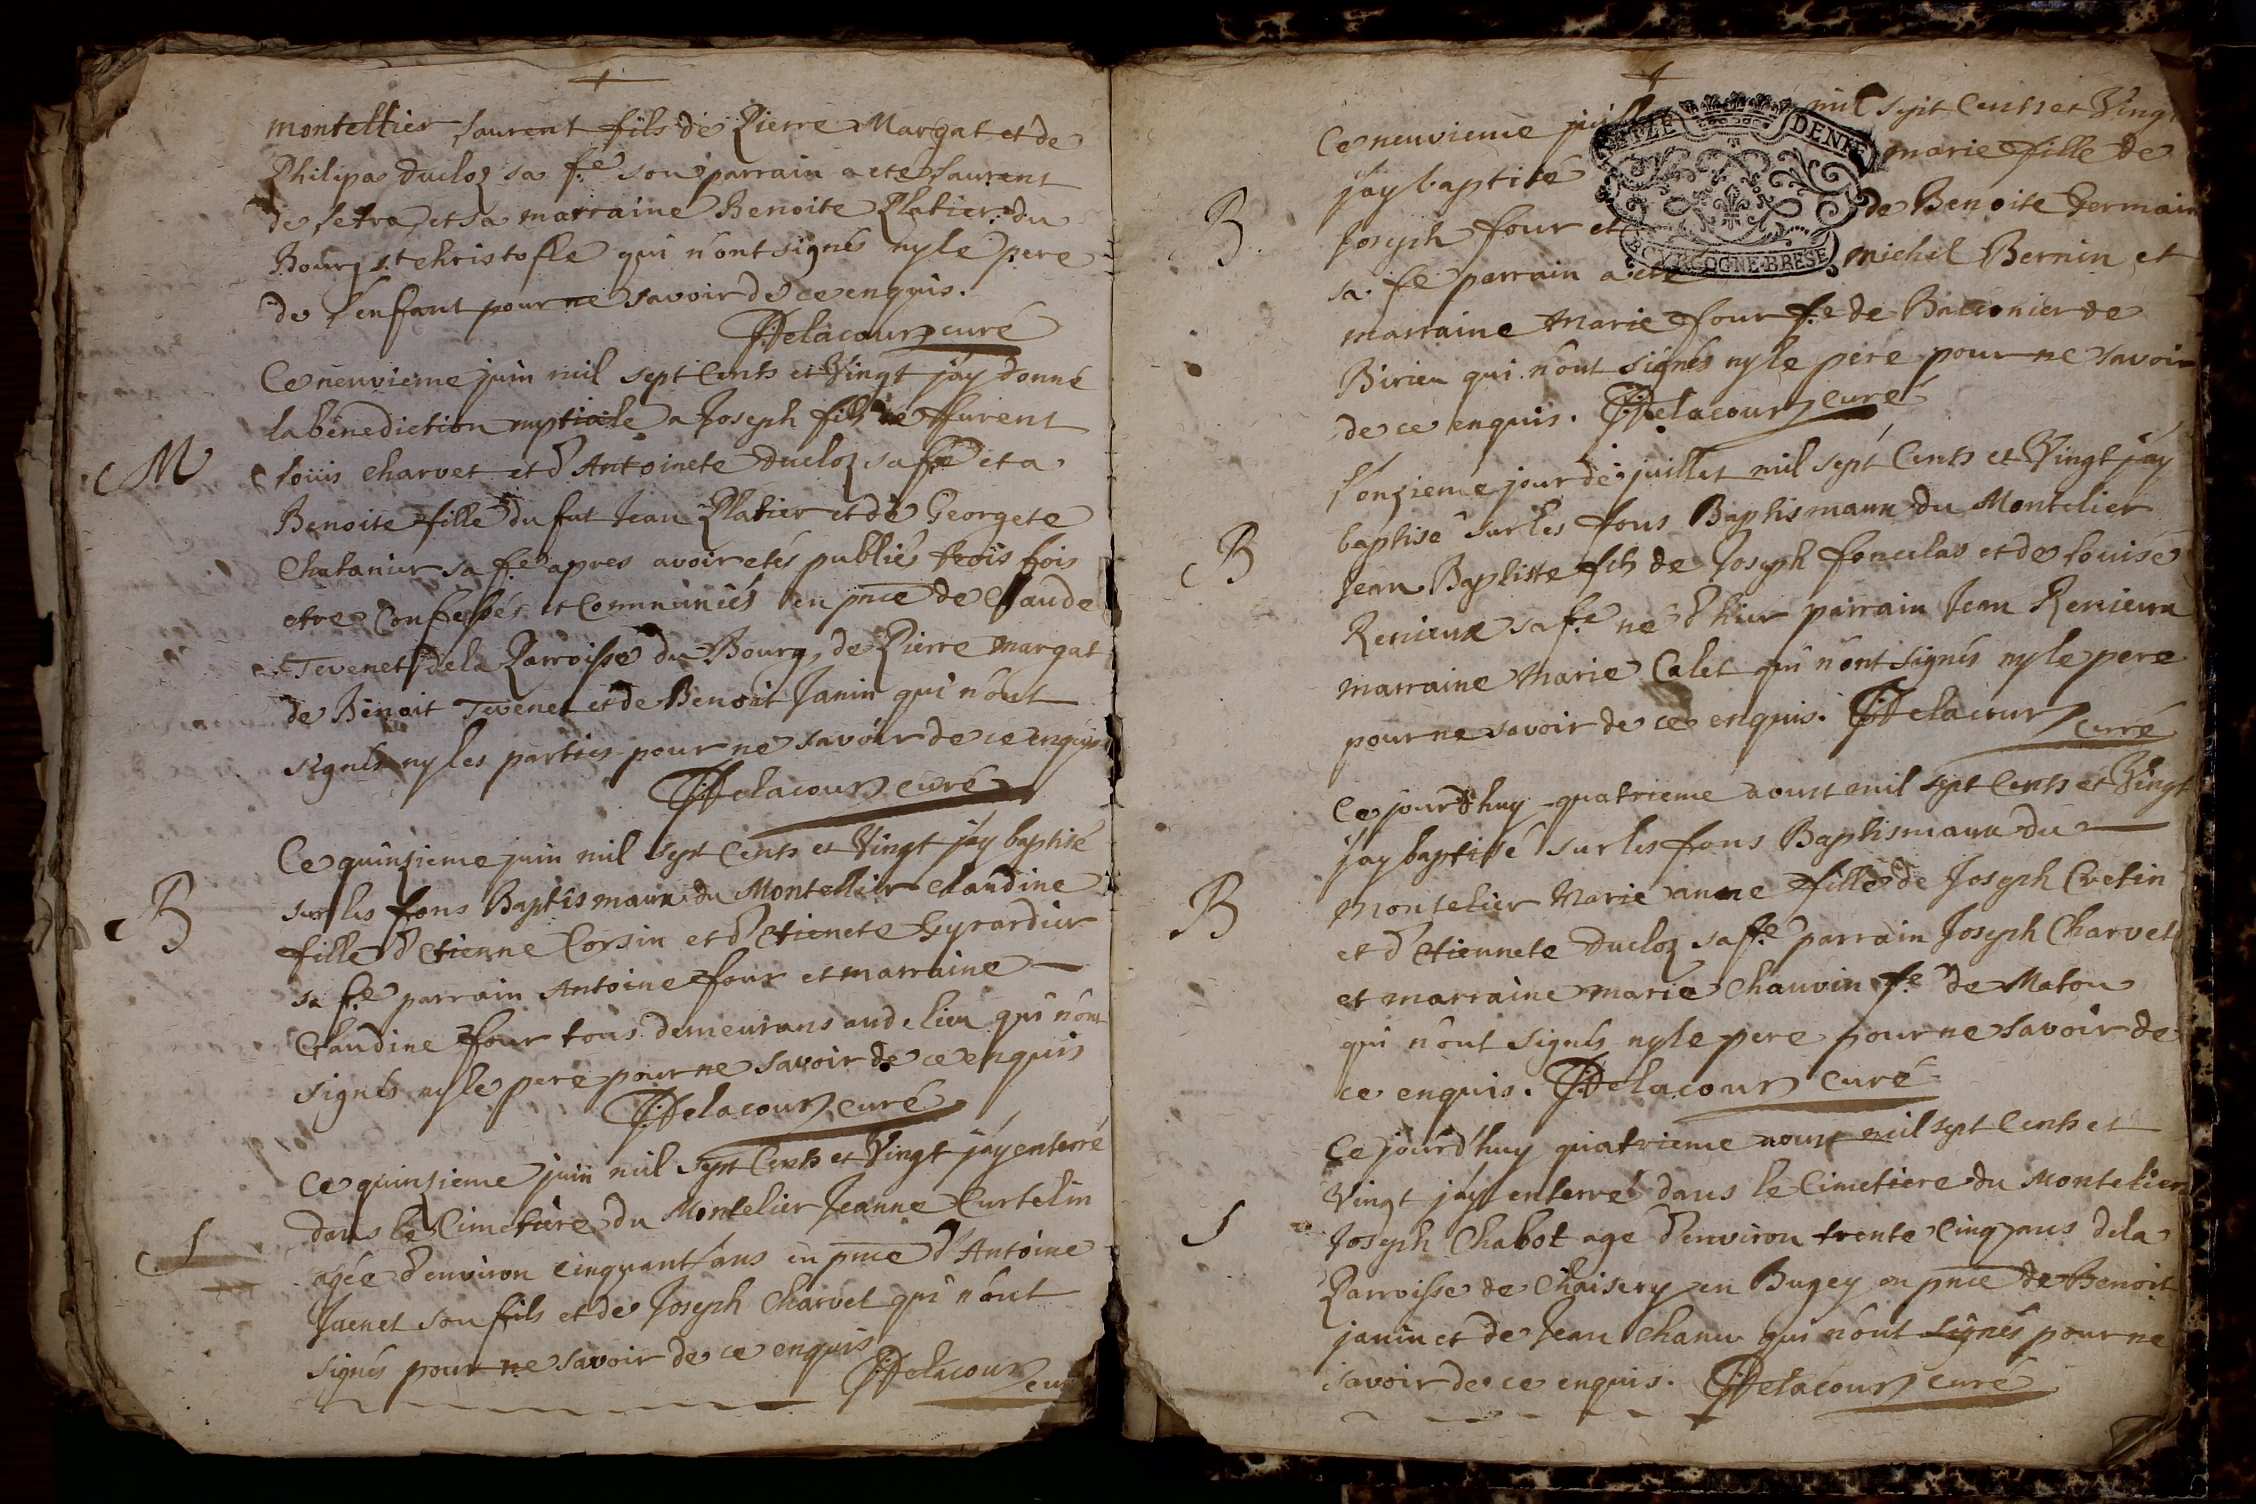 montellier Laurent fils de Pierre Margat et de
Philipa Ducloz sa fe son parrain a eté Laurent
de Letra et sa marraine Benoite Platier du
Bourg st christofle qui n'ont signés ny le pere
de l'enfant pour ne savoir de ce enquis.
Delacour curé
Ce neuvieme juin mil sept Cents et Vingt j'ay donné
la benediction nuptiale a Joseph fils de furent
M
Louis Charvet et d'Antoinete Ducloz sa fe et a
Benoite fille du fut Jean Platier et de Georgete
Chatanier sa fe apres avoir etés publiés trois fois
etre Confessés et Communiés en pnce de Claude
Tevenet de la Parroisse du Bourg, de Pierre margat
de Benoit Tevenet et de Benoit Janin qui n'ont
signés ny les parties pour ne savoir de ce enquis
Delacour curé
Ce quinzieme juin mil sept Cents et Vingt j'ay baptisé
B
sur les fons Baptismaux du Montellier Claudine
fille d'Etienne Corsin et d'Etienete Gyrardier
sa fe parrain Antoine four et marraine
Claudine four tous demeurans aud lieu qui n'ont
signés ny le pere pour ne savoir de ce enquis
Delacour curé
Ce quinzieme juin mil sept Cents et Vingt j'ay enterré
dans le Cimetiere du Montelier Jeanne Curtelin
S
agée d'environ cinquant'ans en pnce d'Antoine
Juenet son fils et de Joseph Charvet qui n'ont
signés pour ne savoir de ce enquis
Delacour curé
Ce neuvieme mil sept Cents et Vingt
j'ay baptisé marie fille de
B
Joseph four et de Benoite Germain
sa fe parrain a eté michel Bernin et
GENER DENR
BOURGOGNE·BRESE
marraine Marie four fe de Baconier de
Birieu qui n'ont signés ny le pere pour ne savoir
de ce enquis. Delacour curé
L'onzieme jour de juillet mil sept Cents et Vingt j'ay
B
baptisé sur les fons Baptismaux du Montelier
Jean Baptiste fils de Joseph fonculas et de Louise
Renieux sa fe né d'hier parrain Jean Renieux
marraine Marie Calet qui n'ont signés ny le pere
pour ne savoir de ce enquis. Delacour
curé
Ce jourd'huy quatrieme aoust mil sept Cents et Vingt
j'ay baptisé sur les fons Baptismaux du
B
Montelier Marie anne fille de Joseph Cretin
et d'Etiennete Ducloz sa fe parrain Joseph Charvet
et marraine marie Chauvin fe de Maton
qui n'ont signés ny le pere pour ne savoir de
ce enquis. Delacour curé
Ce jourd'huy quatrieme aoust mil sept Cents et
Vingt j'ay enterré dans le Cimetiere du Montelier
S
Joseph Chabot agé d'environ trente Cinq ans de la
Parroisse de Chaisery en Bugey en pnce de Benoit
janin et de Jean Chanu qui n'ont signés pour ne
savoir de ce enquis. Delacour curé